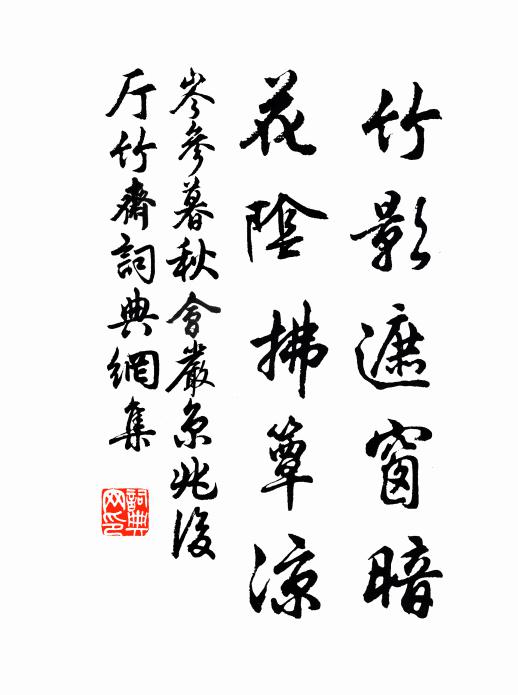 竹影遮窗暗
花陰拂簟涼
岑參暮秋會嚴京兆後
厅竹齋詞典網集
詞典网印